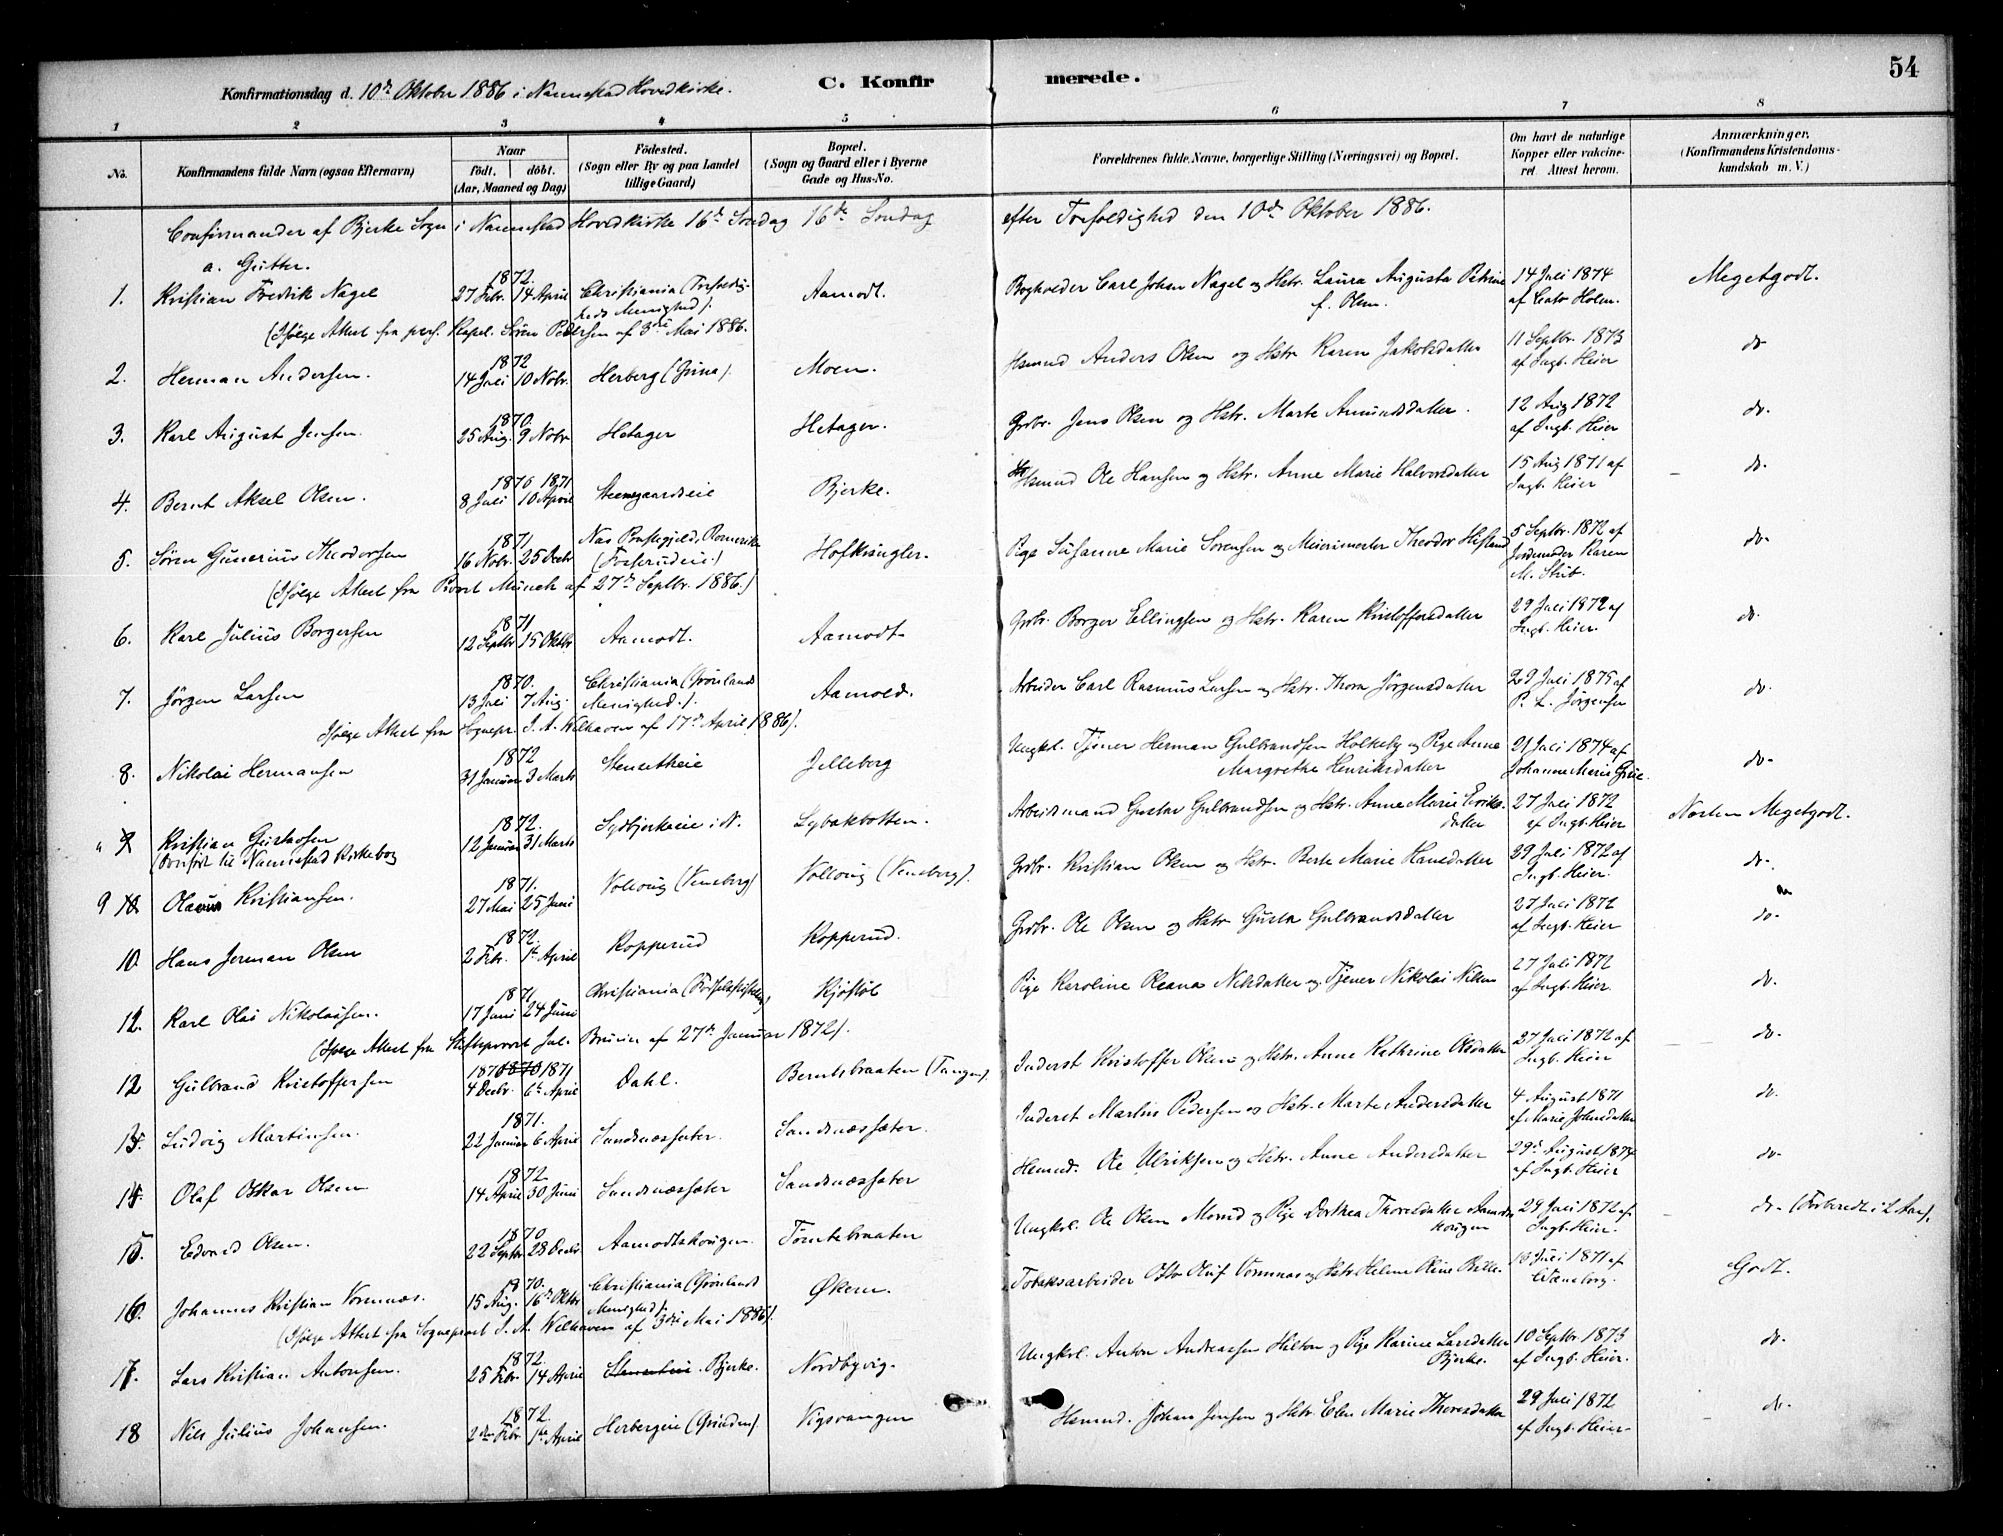 54
Konfirmationsdag d. 10de Oktober 1886 i Nannestad Hovedkirke. C. Konfirmerede.
1 2 3 4 5 6 7 8
No. Konfirmandens fulde Navn (ogsaa Efternavn) Naar født. døbt. (Aar, Maaned og Dag) Födested. (Sogn eller By og paa Landet tillige Gaard) Bopæl. (Sogn og Gaard eller i Byerne Gade og Hus-No. Forældrenes fulde Navne, borgerlige Stilling (Næringsvei) og Bopæl. Om havt de naturlige Kopper eller vakcineret. Attest herom. Anmærkninger. (Konfirmandens Kristendomskundskab m. V.)
Confirmander af Bjerke Sogn i Nannestad Hovedkirke 16de Søndag 16de Søndag efter Trefoldighed den 10de Oktober 1886.
a. Gutter.
1. Kristian Fredrik Nagel 1872. 27 Febr. 14 April Christiania (Trefoldigheds Menighed). Aamodt. Bogholder Carl Johan Nagel og Hstr. Laura Augusta Petrine f. Olsen. 14 Juli 1874 af Holm. Megetgodt.
(Ifølge Attest fra pers. Kapel. Sören Pedersen af 3die Mai 1886.
2. Herman Andersen. 1872 14 Juli 10 Nobr. Herberg (Grina). Moen. Hsmnd Anders Olsen og Hstr. Karen Jakobsdatter 11 Septbr. 1873 af Ingb. Heier do
3. Karl August Jensen. 1870. 25 Aug. 9 Nobr. Hetager Hetager. Grdbr. Jens Olsen og Hstr. Marte Amundsdatter. 12 Aug 1872 af Ingb. Heier do.
4. Bernt Aksel Olsen. 1870 1871 8 Juli 10 April Steensgaardseie Bjerke. Hsmnd Ole Hansen og Hstr. Anne Marie Halvorsdatter 15 Aug 1871 af Ingb. Heier do.
5. Søren Gunerius Theodorsen 1871 16 Nobr. 25 Decbr Næs Præstegjeld, Romerike Hofkvingler. Pige Susanne Marie Sorensen og Meierimester Theodor 5 Septbr. 1872 af Jordemoder Karen M. Stub. do-
(Ifølge Attest fra Provst Münch af 27de Septbr. 1886.)
6. Karl Julius Borgersen 1871 12 Septbr 15 Oktbr. Aamodt. Aamodt. Grdbr. Borger Ellingsen og Hstr. Karen Kristoffersdatter 29 Juli 1872 af Ingb. Heier. do.
7. Jørgen Larsen 1870. 13 Juli 7 Aug. Christiania (Grönlands Menighed). Aamold. Arbeider Carl Rasmus Larsen og Hstr. Thora Jørgensdatter 29 Juli 1875 af P. L. Jørgensen do.
Ifølge Attest fra Sognepr. J. A. Welhaven af 17de April 1886).
8. Nikolai Hermansen 1872 31 Januar 3 Marts Jelleberg Ungkl. Tjener Herman Gulbrandsen Holkeby og Pige Anne Margrethe Henriksdatter 21 Juli 1874 af Johanne Marie do-
9 Kristian Gustavsen 1872. 12 Januar 31 Marts Sydbjerkeeie i N. Lybakbotten. Arbeidsmand Gustav Gulbrandsen og Hstr. Anne Marie Eriksdatter 27 Juli 1872 af Ingb. Heier Næsten Megetgodt.
(Overført til Nannestad Kirkebog
9 10 Olaves Kristiansen. 1871. 27 Mai 25 Juni Volloug (Veneberg) Volloug (Veneberg). Grdbr. Kristian Olsen og Hstr. Berte Marie Hansdatter 29 Juli 1872 af Ingb. Heier. do-
10 Hans Jerman Olsen 1872. 2 Febr. 1ste April Kopperud Kopperud. Grdbr. Ole Olsen og Hstr Gusta Gulbrandsdatter 27 Juli 1872 af Ingb. Heier do-
12. Karl Olai Nikolaisen. 1871 17 Juni 24 Juni Christiania (Fødselsstiftelsen) Kjøstøl Pige Karoline Oleana Nilsdatter og Tjener Nikolai Nilsen 27 Juli 1872 af Ingb. Heier. do.
(Ifølge Attest fra Stiftsprovst Jul. Bruun af 27de Januar 1872).
12 Gulbrand Kristoffersen 1870 1871 4 Decbr. 6te April Dahl. Berntsbraaten (Tangen). Inderst Kristoffer Olsen og Hstr. Anne Kathrine Olsdatter 27 Juli 1872 af Ingb. Heier do.
13. Ludvig Martinsen. 1871. 22 Januar 6 April Sandsnæssæter. Sandsnæssæter. Inderst Martin Pedersen og Hstr. Marte Andersdatter 4 August 1871 af Marie Johnsdatter do.
14. Olaf Oskar Olsen 1872. 14 April 30 Juni Sandsnæssæter Sandsnæssæter Hsmnd. Ole Ulriksen og Hstr. Anne Andersdatter 29de August 1874 af Ingb. Heier do.
15. Edvard Olsen. 1870 22 Septbr. 28 Decbr. Aamodtshougen. Tomtebraaten Ungkl. Ole Olsen og Pige Dorthea Thoresdatter Aamodtshougen 29 Juli 1872 af Ingb. Heier. do- (Forberedt i 2 Aar).
16. Johannes Kristian Vormnæs. 1870. 15 Aug. 16de Oktbr Christiania (Grönlands Menighed). Økern. Tobaksarbeider Otto Oluf Vormnæs og Hstr. Helene Oline 10 Juli 1871 af Godt.
(Ifølge Attest fra Sogneprest J. A. Welhaven af 3die Mai 1886).
17. Lars Kristian Antonsen. 1872. 25 Febr. 14 April Bjerke. Nordbyvig. Ungkl. Anton Andreassen Hilton og Pige Karine Larsdatter Bjerke. 10 Septbr. 1873 af Ingb. Heier. do-
18 Nils Julius Johansen. 1872. 2den Febr 1ste April Herbergeie (Grinden). Vigsvangen Hsmnd. Johan Jensen og Hstr. Elen Marie Thoresdatter 29 Juli 1872 af Ingb. Heier- do.